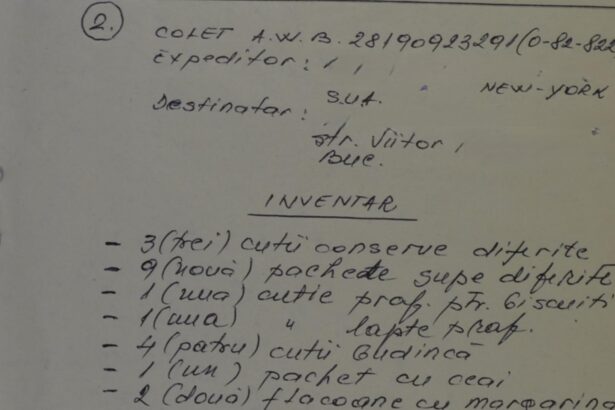 2.
COLET A.W.B. 28190923291(0-82-822
Expeditor: , ,
S.U.A. NEW-YORK
Destinatar:
str. Viitor,
Buc.
INVENTAR
- 3(trei) cutii conserve diferite
- 9(nouă) pachete supe diferite
- 1(una) cutie praf. ptr. biscuiti
- 1(una) " lapte praf.
- 4(patru) cutii budincă
- 1(un) pachet cu ceai
- 2(două) flacoane cu margarina